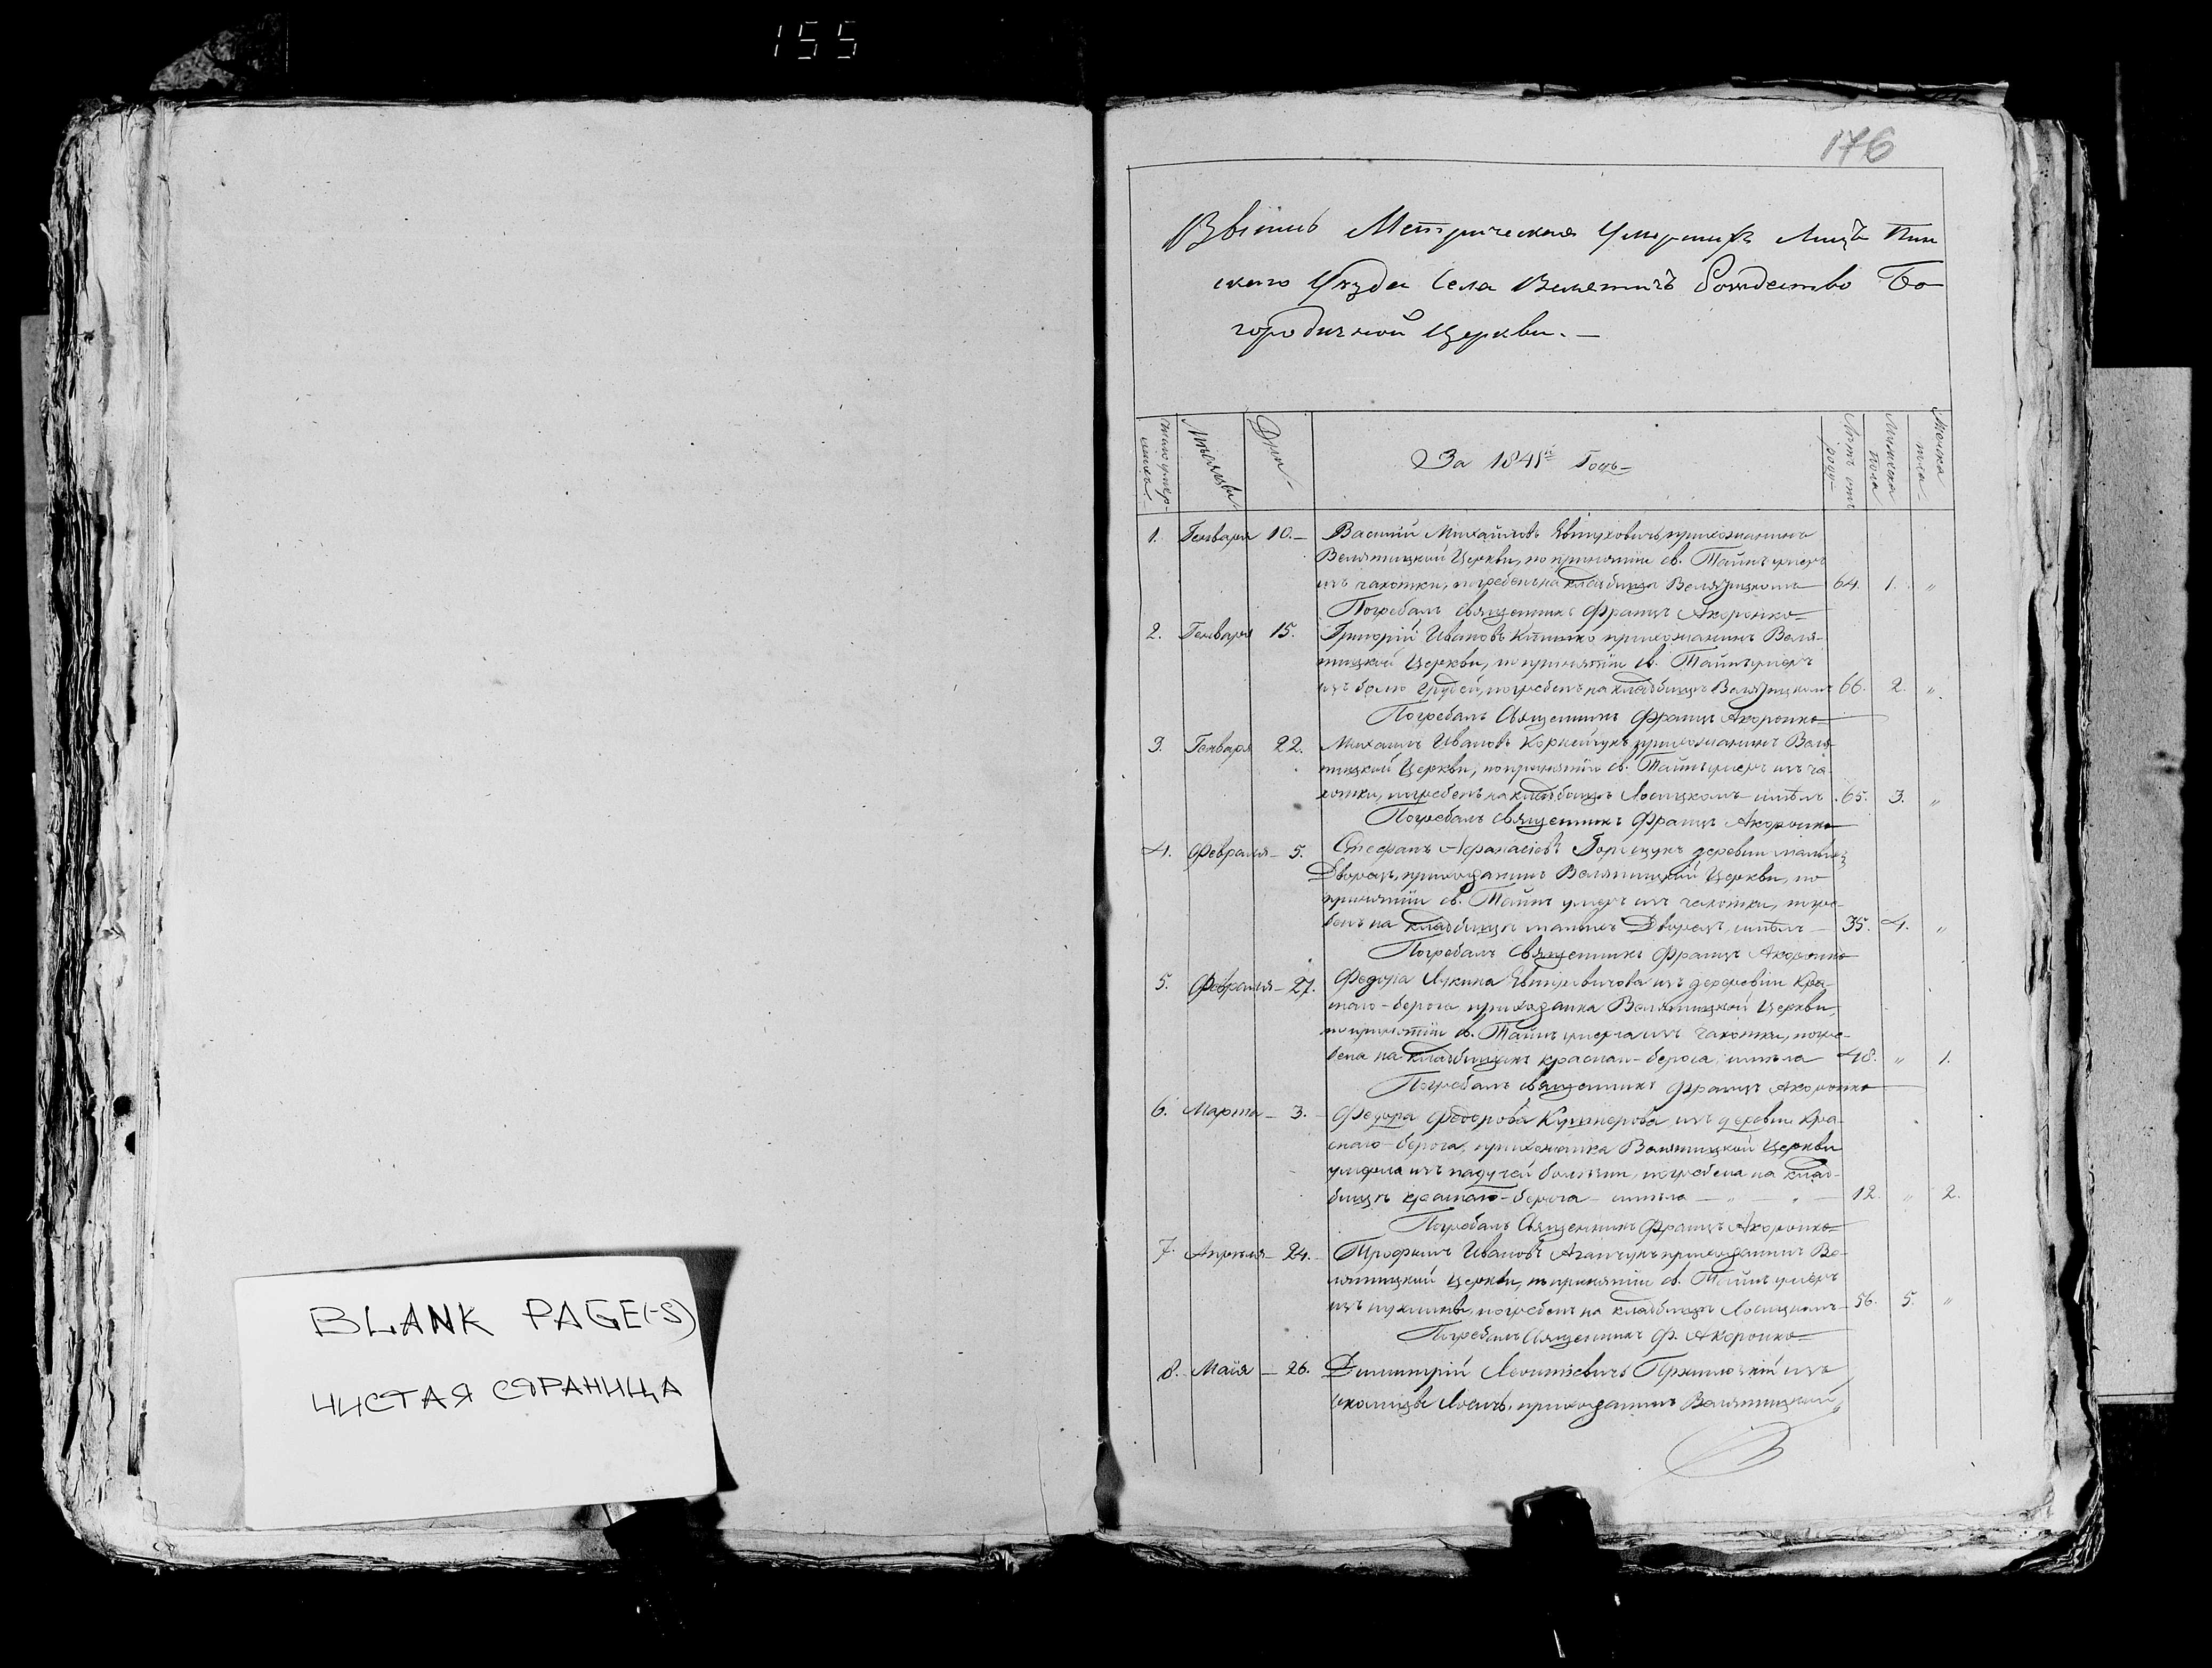 155
176
Метрическая умершихъ лицъ Пин
скаго уѣзда села Велятичъ Рождество Бо
городичной Церкви. —
Число умер-
шихъ
Мѣсяцы
Дни
За 1841й Годъ —
Лѣтъ отъ
роду —
Мужеска
пола
Женска
пола
1. Генваря 10. — Василій Михайловъ прихожанинъ
Велятицкой Церкви, по принятіи св. Таинъ умеръ
изъ чахотки, погребенъ на кладбищѣ Велятицкомъ — 64. 1. „
Погребалъ Священникъ Францъ Акоронко
2. Генваря 15. Григорій Ивановъ прихожанинъ Веля-
тицкой Церкви, по принятіи св. Таинъ умеръ
изъ болю грудей, погребенъ на кладбищѣ Велятицкомъ 66. 2. „
Погребалъ Священникъ Францъ Акоронко
3. Генваря 22. Михаилъ Ивановъ Корнейчукъ прихожанинъ Веля-
тицкой Церкви, по принятіи св. Таинъ умеръ изъ ча-
хотки, погребенъ на кладбищѣ Лосицкомъ — имѣлъ 65. 3. „
Погребалъ Священникъ Францъ Акоронко
4. Февраля — 5. Стефанъ Афанасіевъ деревни
Дворецъ, прихожанинъ Велятицкой Церкви, по
принятіи св. Таинъ умеръ изъ чахотки, погре-
бенъ на кладбищѣ Дворецъ, имѣлъ — 35. 4. „
Погребалъ Священникъ Францъ Акоронко
5. Февраля — 27. Федора изъ Кра-
снаго-берега прихожанка Велятицкой Церкви,
по принятіи св. Таинъ умерла изъ чахотки, погре-
бена на кладбищѣ краснаго-берега, имѣла 48. „ 1.
Погребалъ Священникъ Францъ Акоронко
6. Марта — 3. Федора Федорова изъ деревни Кра-
снаго-берега, прихожанка Велятицкой Церкви
умерла изъ падучей болѣзни, погребена на клад-
бищѣ краснаго-берега — имѣла — „ — „ — 12. „ 2.
Погребалъ Священникъ Францъ Акоронко
7. Апрѣля — 24. Трофимъ Ивановъ прихожанинъ Ве-
лятицкой Церкви, по принятіи св. Таинъ умеръ
изъ погребенъ на кладбищѣ Лосицкомъ — 56. 5. „
Погребалъ Священникъ Ф. Акоронко
8. Маія — 26. Димитрій изъ
околицы Лосичъ, прихожанинъ Велятицкой
BLANK PAGE(-S)
ЧИСТАЯ СТРАНИЦА